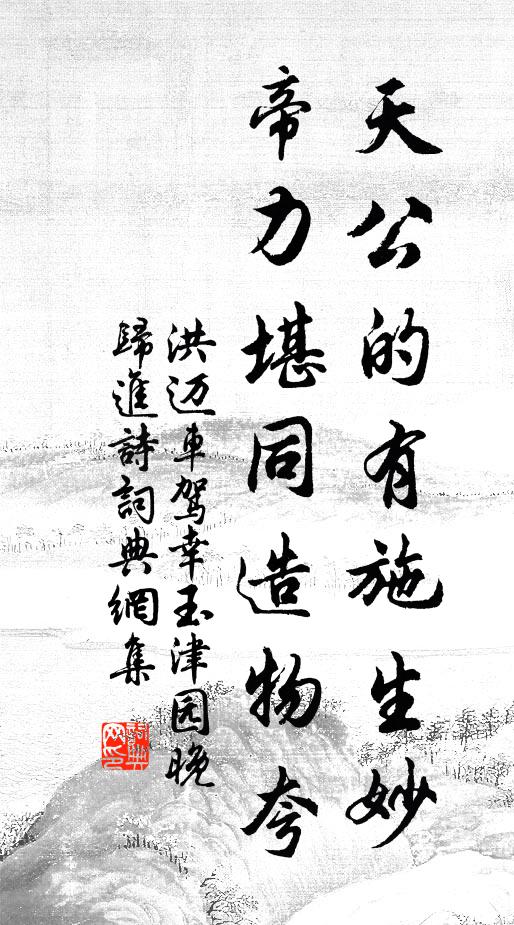 天公的有施生妙
帝力堪同造物夸
洪迈車駕幸玉津园晚
歸進詩詞典網集